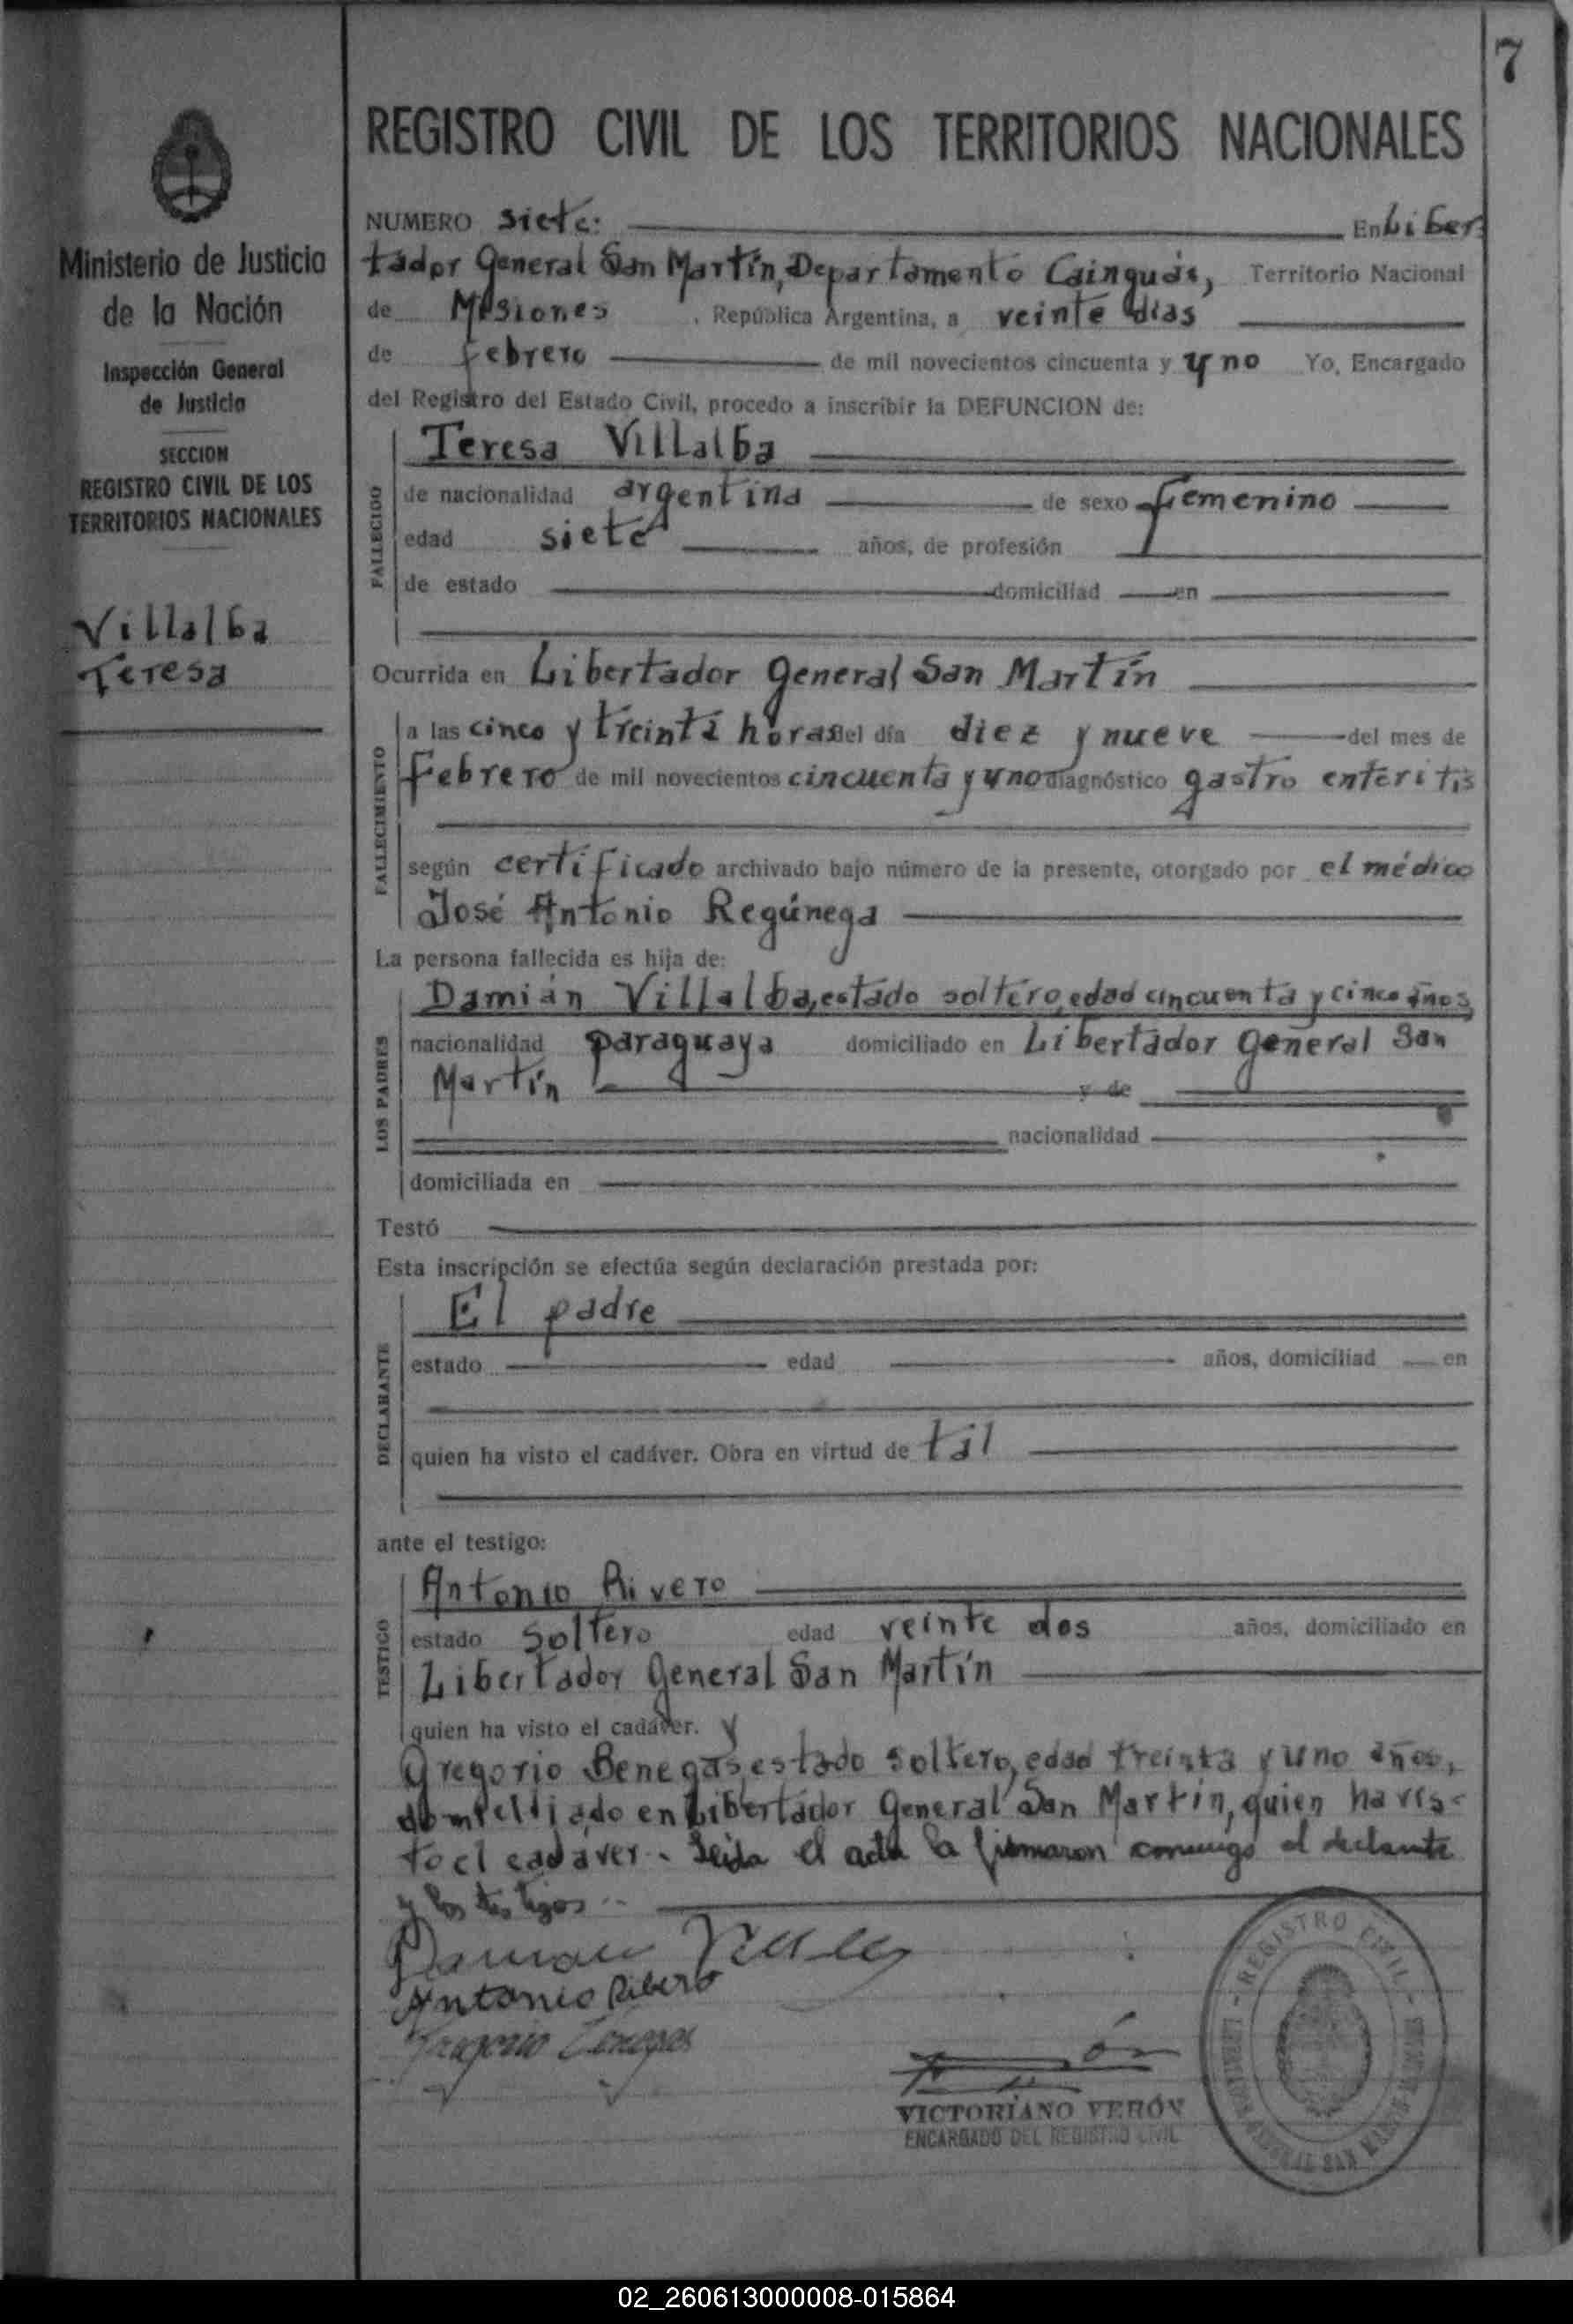 7
REGISTRO CIVIL DE LOS TERRITORIOS NACIONALES
Ministerio de Justicia
de la Nación
Inspección General
de Justicia
SECCION
REGISTRO CIVIL DE LOS
TERRITORIOS NACIONALES
Villalba
Teresa
NUMERO siete: En Liber
tador General San Martín, Departamento Cainguás, Territorio Nacional
de Misiones, República Argentina, a veinte días
de febrero de mil novecientos cincuenta y uno Yo, Encargado
del Registro del Estado Civil, procedo a inscribir la DEFUNCION de:
FALLECIDO
Teresa Villalba
de nacionalidad argentina de sexo femenino
edad siete años, de profesión
de estado domiciliad en
Ocurrida en Libertador General San Martín
FALLECIMIENTO
a las cinco y treinta horas del día diez y nueve del mes de
febrero de mil novecientos cincuenta y uno diagnóstico gastro enteritis
según certificado archivado bajo número de la presente, otorgado por el médico
José Antonio Regúnega
La persona fallecida es hija de:
LOS PADRES
Damián Villalba, estado soltero, edad cincuenta y cinco años,
nacionalidad paraguaya domiciliado en Libertador General San
Martín y de
nacionalidad
domiciliada en
Testó
Esta inscripción se efectúa según declaración prestada por:
DECLARANTE
El padre
estado edad años, domiciliad en
quien ha visto el cadáver. Obra en virtud de tal
ante el testigo:
TESTIGO
Antonio Rivero
estado soltero edad veinte dos años, domiciliado en
Libertador General San Martín
quien ha visto el cadáver. y
Gregorio Benegas, estado soltero, edad treinta y uno años,
domiciliado en Libertador General San Martín, quien ha vis-
to el cadáver. Leída el acta la firmaron conmigo el declante
y los testigos
Antonio Ribero
VICTORIANO VERÓN
ENCARGADO DEL REGISTRO CIVIL
REGISTRO CIVIL
02_260613000008-015864